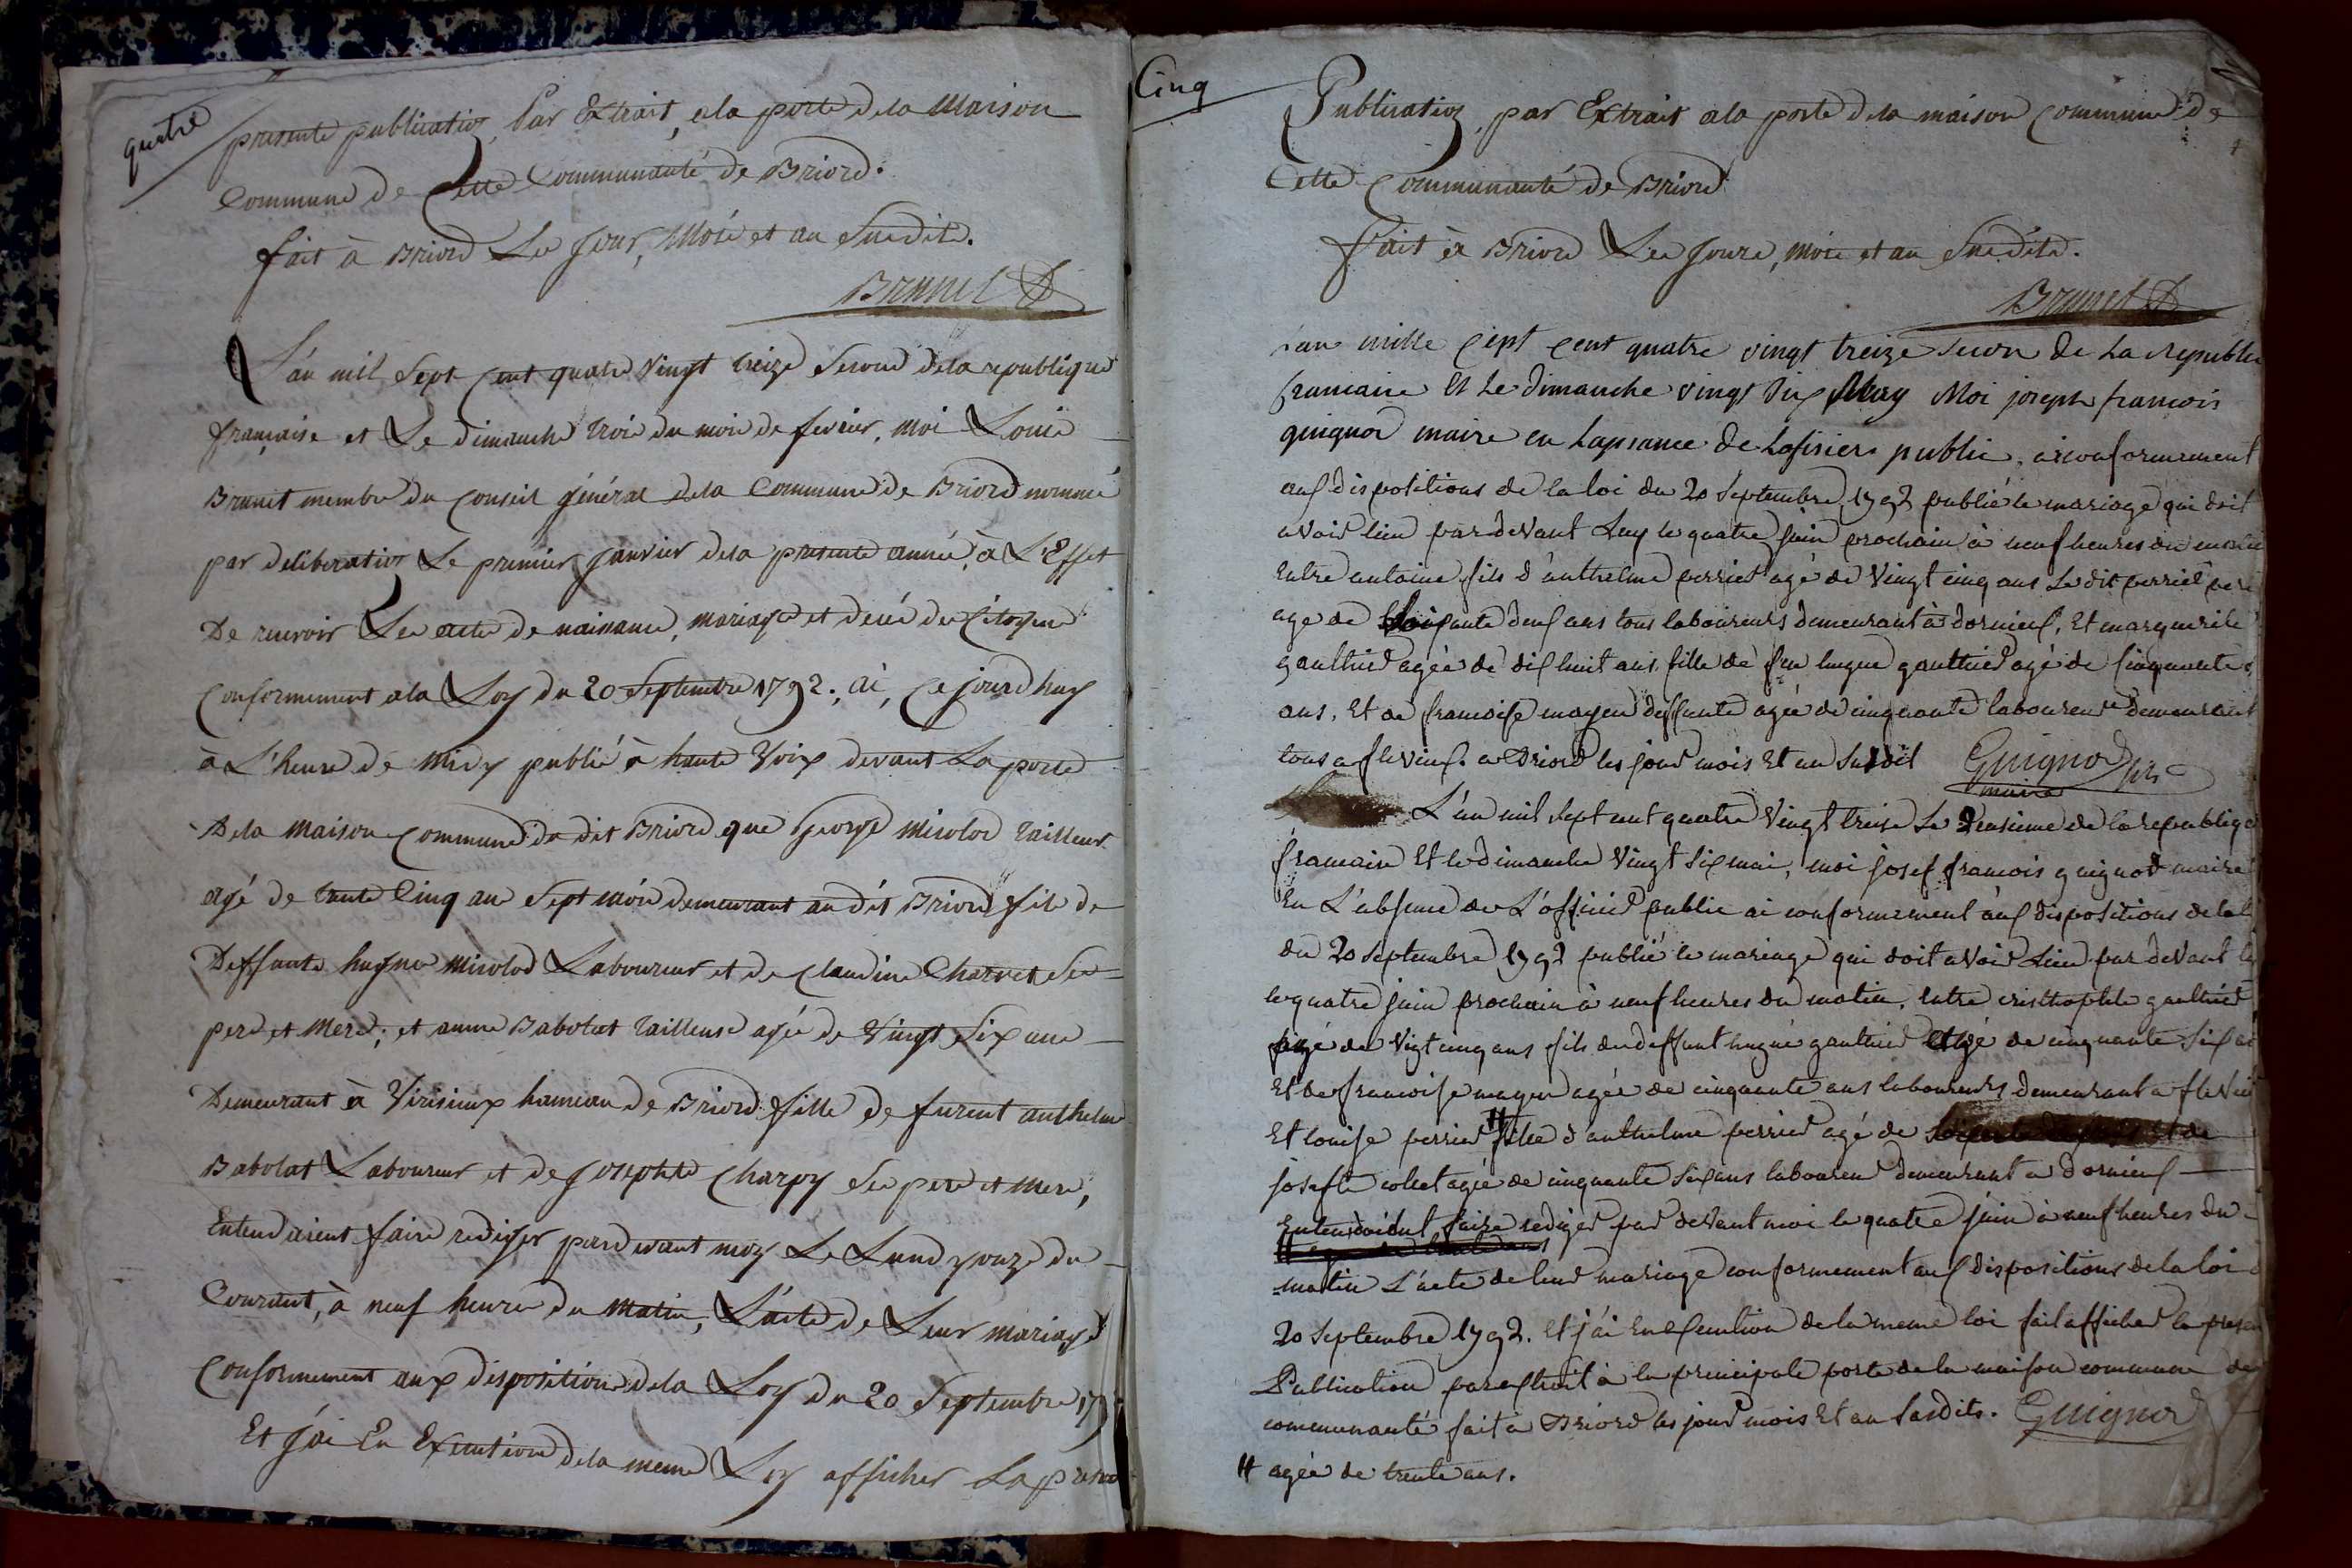 quatre
presente publication, Par Extrait, ala porte dela Maison
Commune de Cette Communauté de Briord.
fait à Briord Les Jour, Mois et an Susdits.
Brunet
L'an mil Sept Cent quatre Vingt treize Second dela republique
française et Le dimanche trois du mois de fevrier, moi Louis
Brunet membre du Conseil général dela Commune de Briord nommé
par deliberation Le premier Janvier dela presente année, à L'Effet
De recevoir Les actes de naissance, mariage et decés des Citoyens
Conformement ala Loy du 20 Septembre 1792; ai, Ce jourd'huy
à L'heure de Midy publié à haute Voix devant La porte
Dela Maison Commune du dit Briord que George Micolod tailleur
agé de trente Cinq ans Sept mois demeurant au dit Briord fils de
Deffunts hugues Micolod Laboureur et de Claudine Charvet Ses
pere et Mere; et anne Babolat tailleuse agée de Vingt Six ans
Demeurant à Vérizieux hameau de Briord fille de furent anthelme
Babolat Laboureur et de Josephte Charpy Ses pere et Mere,
Entendaient faire rediger pardevant moy Le Lundy onze du
Courant, à neuf heures du Matin, L'acte de Leur mariage
Conformement aux dispositions dela Loy du 20 Septembre 179
Et J'ai En Exécution dela meme Loy afficher La presente
Cinq
Publication, par Extrait ala porte dela maison Commune de
Cette Communauté de Briord
fait à Briord Les Jours, mois et an Susdits.
Brunet
l'an mille cept cent quatre vingt treize secon de La republi
francaise Et Le dimanche vingt six May Moi joseph francois
guignod maire en Lapsance de Lofisier public, ai conformement
aux dispositions de la loi du 20 Septembre 1792 publié le mariage qui doit
avoir lieu par devant Luy le quatre juin prochain à neuf heures du matin
Entre antoine fils d'anthelme perrier agé de Vingt cinq ans Le dit perrier pere
age de Soixante deux ans tous laboureurs demeurant à dornieux, Et marguerite
gauthier agée de dix huit ans fille de feu hugue gauthier agé de Cinquante
ans, Et de francoise mayen deffunte agée de cinquante laboureur demeurant
tous a flevieux. a Briord les jour mois Et an Susdit Guignod
maire
L'an mil Sept cent quatre Vingt treize Le deusieme de la republiq
francaise Et le dimanche Vingt Six mai, moi josef francois guignod maire
En L'absence de L'officier public ai conformement aux dispositions de la l
du 20 Septembre 1792 publié le mariage qui doit avoir Lieu par devant
le quatre juin prochain à neuf heures du matin, Entre cristhophle gauthier
agé de Vigt cinq ans fils de deffunt hugue gauthier agé de cinquante Six
Et de francoise mayen agée de cinquante ans laboureurs demeurant a flevieu
Et louise perrier H fille d'anthelme perrier agé de
josefte colet agée de cinquante Six ans laboureur demeurant a dornieux
Entendoient faire rediger par devant moi le quatre juin à neuf heures du
matin L'acte de leur mariage conformement aux dispositions de la loi
20 Septembre 1792. Et j'ai En Execution de la meme loi fait afficher la presen
Publication par extrait à la principale porte de la maison commune de
communauté fait a Briord les jour mois Et an Susdits. Guignod
H agée de trente ans.